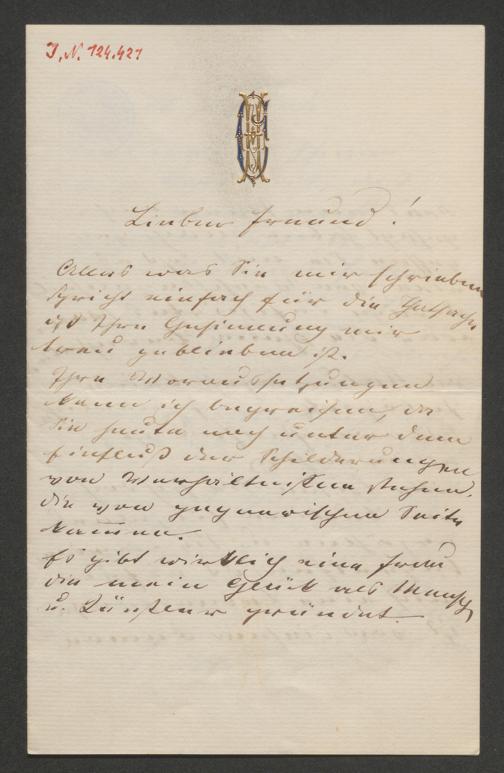 I. N. 124.421
Lieber Freund!
Alles was Sie mir schrieben
spricht einfach für die Thatsache
daß Ihre Gesinnung mir
treu geblieben ist.
Ihre Voraussetzungen
kann ich begreifen, da
Sie heute noch unter dem
Einfluß der Schilderungen
von Verhältnißen stehen,
die von gegnerischer Seite
kamen.
Es gibt wirklich eine Frau
die mein Glück als Mensch
u. Künstler gründet.